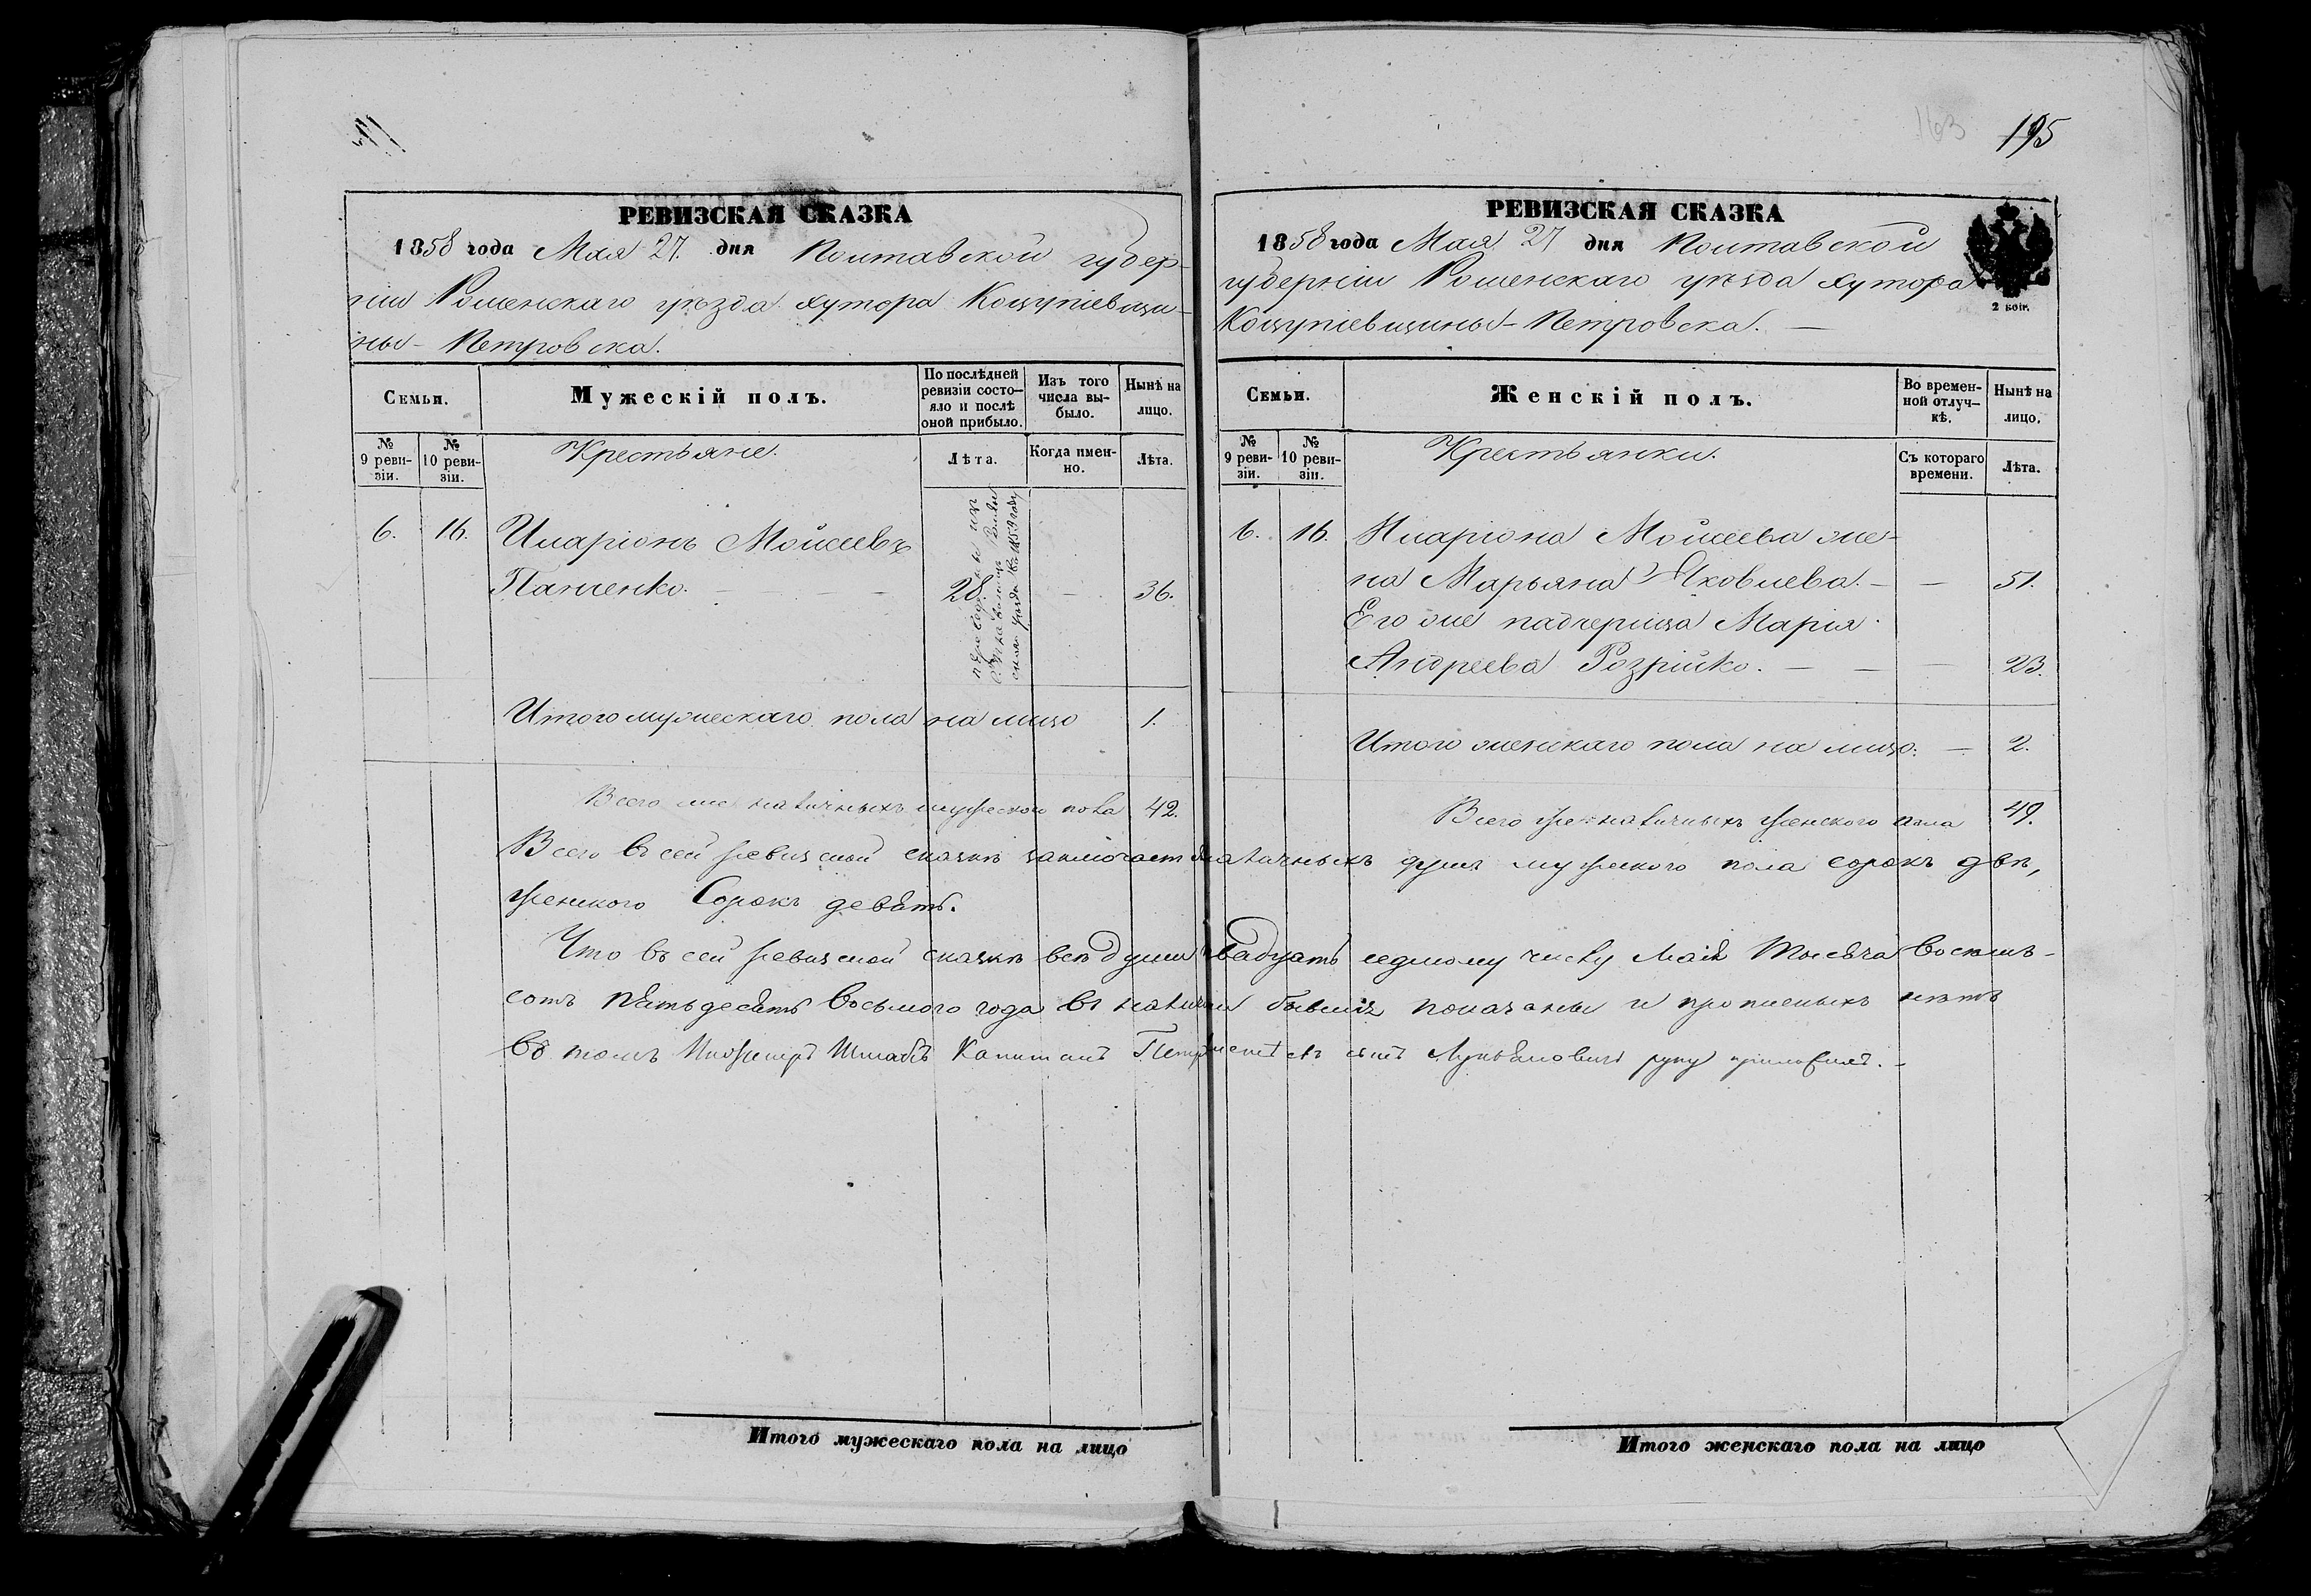 195
163
РЕВИЗСКАЯ СКАЗКА
1858 года Мая 27. дня Полтавской губер-
ніи Роменскаго уѣзда хутора Коцупіевщи-
ны - Петровска.
Семьи.
Мужескій полъ.
По послѣдней ревизіи состо-яло и послѣ оной прибыло.
Изъ того числа вы-было.
Нынѣ на лицо.
№ 9 реви-зіи.
№ 10 реви-зіи.
Крестьяне.
Лѣта.
Когда имен-но.
Лѣта.
6. 16. Иларіонъ Мойсеевъ
Панченко. 28. 36.
уѣзда въ 1859 году
Итого мужескаго пола на лицо 1.
Всего же наличныхъ мужеского пола 42.
РЕВИЗСКАЯ СКАЗКА
1858 года Мая 27 дня Полтавской
губерніи Роменскаго уѣзда хутора
Коцупіевщины - Петровска.
2 коп.
Семьи.
Женскій полъ.
Во времен-ной отлуч-кѣ.
Нынѣ на лицо.
№ 9 реви-зіи.
№ 10 реви-зіи.
Крестьянки.
Съ котораго времени.
Лѣта.
6. 16. Иларіона Мойсеева же-
на Марьяна Яковлева. 51.
Его же падчерица Марія
Андреева Розрійко. 23.
Итого женскаго пола на лицо. 2.
Всего же наличныхъ женского пола 49.
Всего въ сей ревизской сказкѣ заключает наличныхъ душъ мужеского пола сорокъ двѣ,
женского Сорокъ девять.
Что въ сей ревизской сказкѣ всѣ души двадцать седмому числу Мая Тысяча восемь-
сотъ пятьдесятъ восьмого года въ наличіи бывшіе показаны и прописныхъ нѣтъ
въ томъ Инженеръ Штабсъ Капитанъ сынъ Лукьяновичъ руку приложилъ.
Итого мужескаго пола на лицо
Итого женскаго пола на лицо